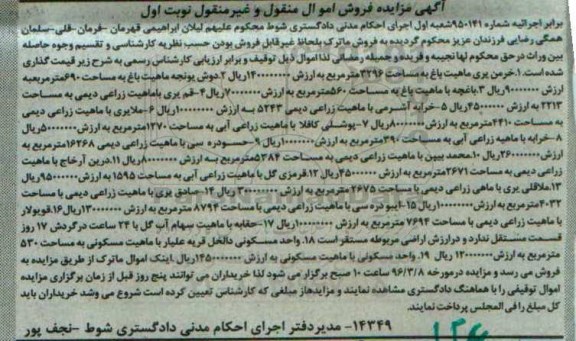 آگهی مزایده فروش اموال منقول و غیرمنقول نوبت اول
برابر اجرائیه شماره ۹۵۰۱۴۱شعبه اول اجرای احکام مدنی دادگستری شوط محکوم علیهم لیلان ابراهیمی قهرمان -فرمان-قلی-سلمان
همگی رضایی فرزندان عزیز محکوم گردیده به فروش ماترک بلحاظ غیرقابل فروش بودن حسب نظریه کارشناسی و تقسیم وجوه حاصله
بین وراث در حق محکوم لها نجیبه و فریده و جمیله رمضانی لذا اموال ذیل توقیف و برابر ارزیابی کارشناس رسمی به شرح زیر قیمت گذاری
شده است.۱.خرمن یری ماهیت باغ به مساحت ۳۲۹۶ مترمربع به ارزش ریال ۲.دوش یونجه ماهیت باغ به مساحت ۶۹۰مترمربعبه
ارزش ریال ۳.باغچه با ماهیت باغ به مساحت ۵۶۰مترمربع به ارزش ریال۴-قم یری باماهیت زراعی دیمی به مساحت
۲۲۱۳ به ارزش ریال ۵-خرابه آشرمی با ماهیت زراعی دیمی ۵۲۴۳ به ارزش ریال ۶-ملایری با ماهیت زراعی دیمی
به مساحت ۲۴۱۰مترمربع به ارزش ریال ۷-پوشلی کافلا با ماهیت زراعی آبی به مساحت ۱۲۷۰مترمربع به ارزش ریال
۸-خرابه با ماهیه زراعی آبی به مساحت ۳۹۰مترمربع به ارزش ریال ۹-حسودره سی با ماهیت زراعی دیمی ۱۶۲۶۸مترمربع به
ارزش ریال ۱۰.محمد بیین با ماهیت زراعی دیمی به مساحت ۵۳۸۴مترمربع به ارزش ریال ۱۱.درین آرخاج با ماهیت
زراعی دیمی به مساحت ۲۶۷۱مترمربع به ارزش ریال ۱۲.قرمزی گل با ماهیت زراعی آبی به مساحت ۱۵۹۵ به ارزش ریال
۱۳.ملاقلی یری با ماهی زراعی دیمی با مساحت ۲۶۷۵ مترمربع به ارزش ریال ۱۴-صادق یری با ماهیت زراعی دیمی با مساحت
۴۰۳۲مترمربع به ارزش ریال ۱۵-ایبو دره سی با ماهیت دیمی با مساحت ۸۷۹۴ مترمربع با ارزش ریال ۱۶.قویولار
با ماهیت زراعی دیمی با مساحت ۷۶۹۴ مترمربع به ارزش ریال ۱۷-حقابه با ماهیت سهام آب گل با ۲۴ ساعت درگردش ۱۷ روز
قسمت مستقل ندارد و در ارزش اراضی مربوطه مستقر است ۱۸. واحد مسکونی داخل قریه علیار با ماهیت مسکونی به مساحت ۵۳۰
مترمربع به ارزش ریال ۱۹. واحد مسکونی با ماهیت مسکونی به ارزش ریال.اینک اموال ماترک از طریق مزایده به
فروش می رسد و مزایده درمورخه ۹۶/۳/۸ ساعت ۱۰ صبح برگزار می شود لذا خریداران می توانند پنج روز قبل از زمان برگزاری مزایده
اموال توقیفی را با هماهنگ دادگستری مشاهده نمایند و مزایدهاز مبلغی که کارشناس تعیین کرده است شروع می وشد خریداران باید
کل مبلغ را فی المجلس پرداخت نمایند.
۱۴۳۴۹- مدیردفتر اجرای احکام مدنی دادگستری شوط -نجف پور